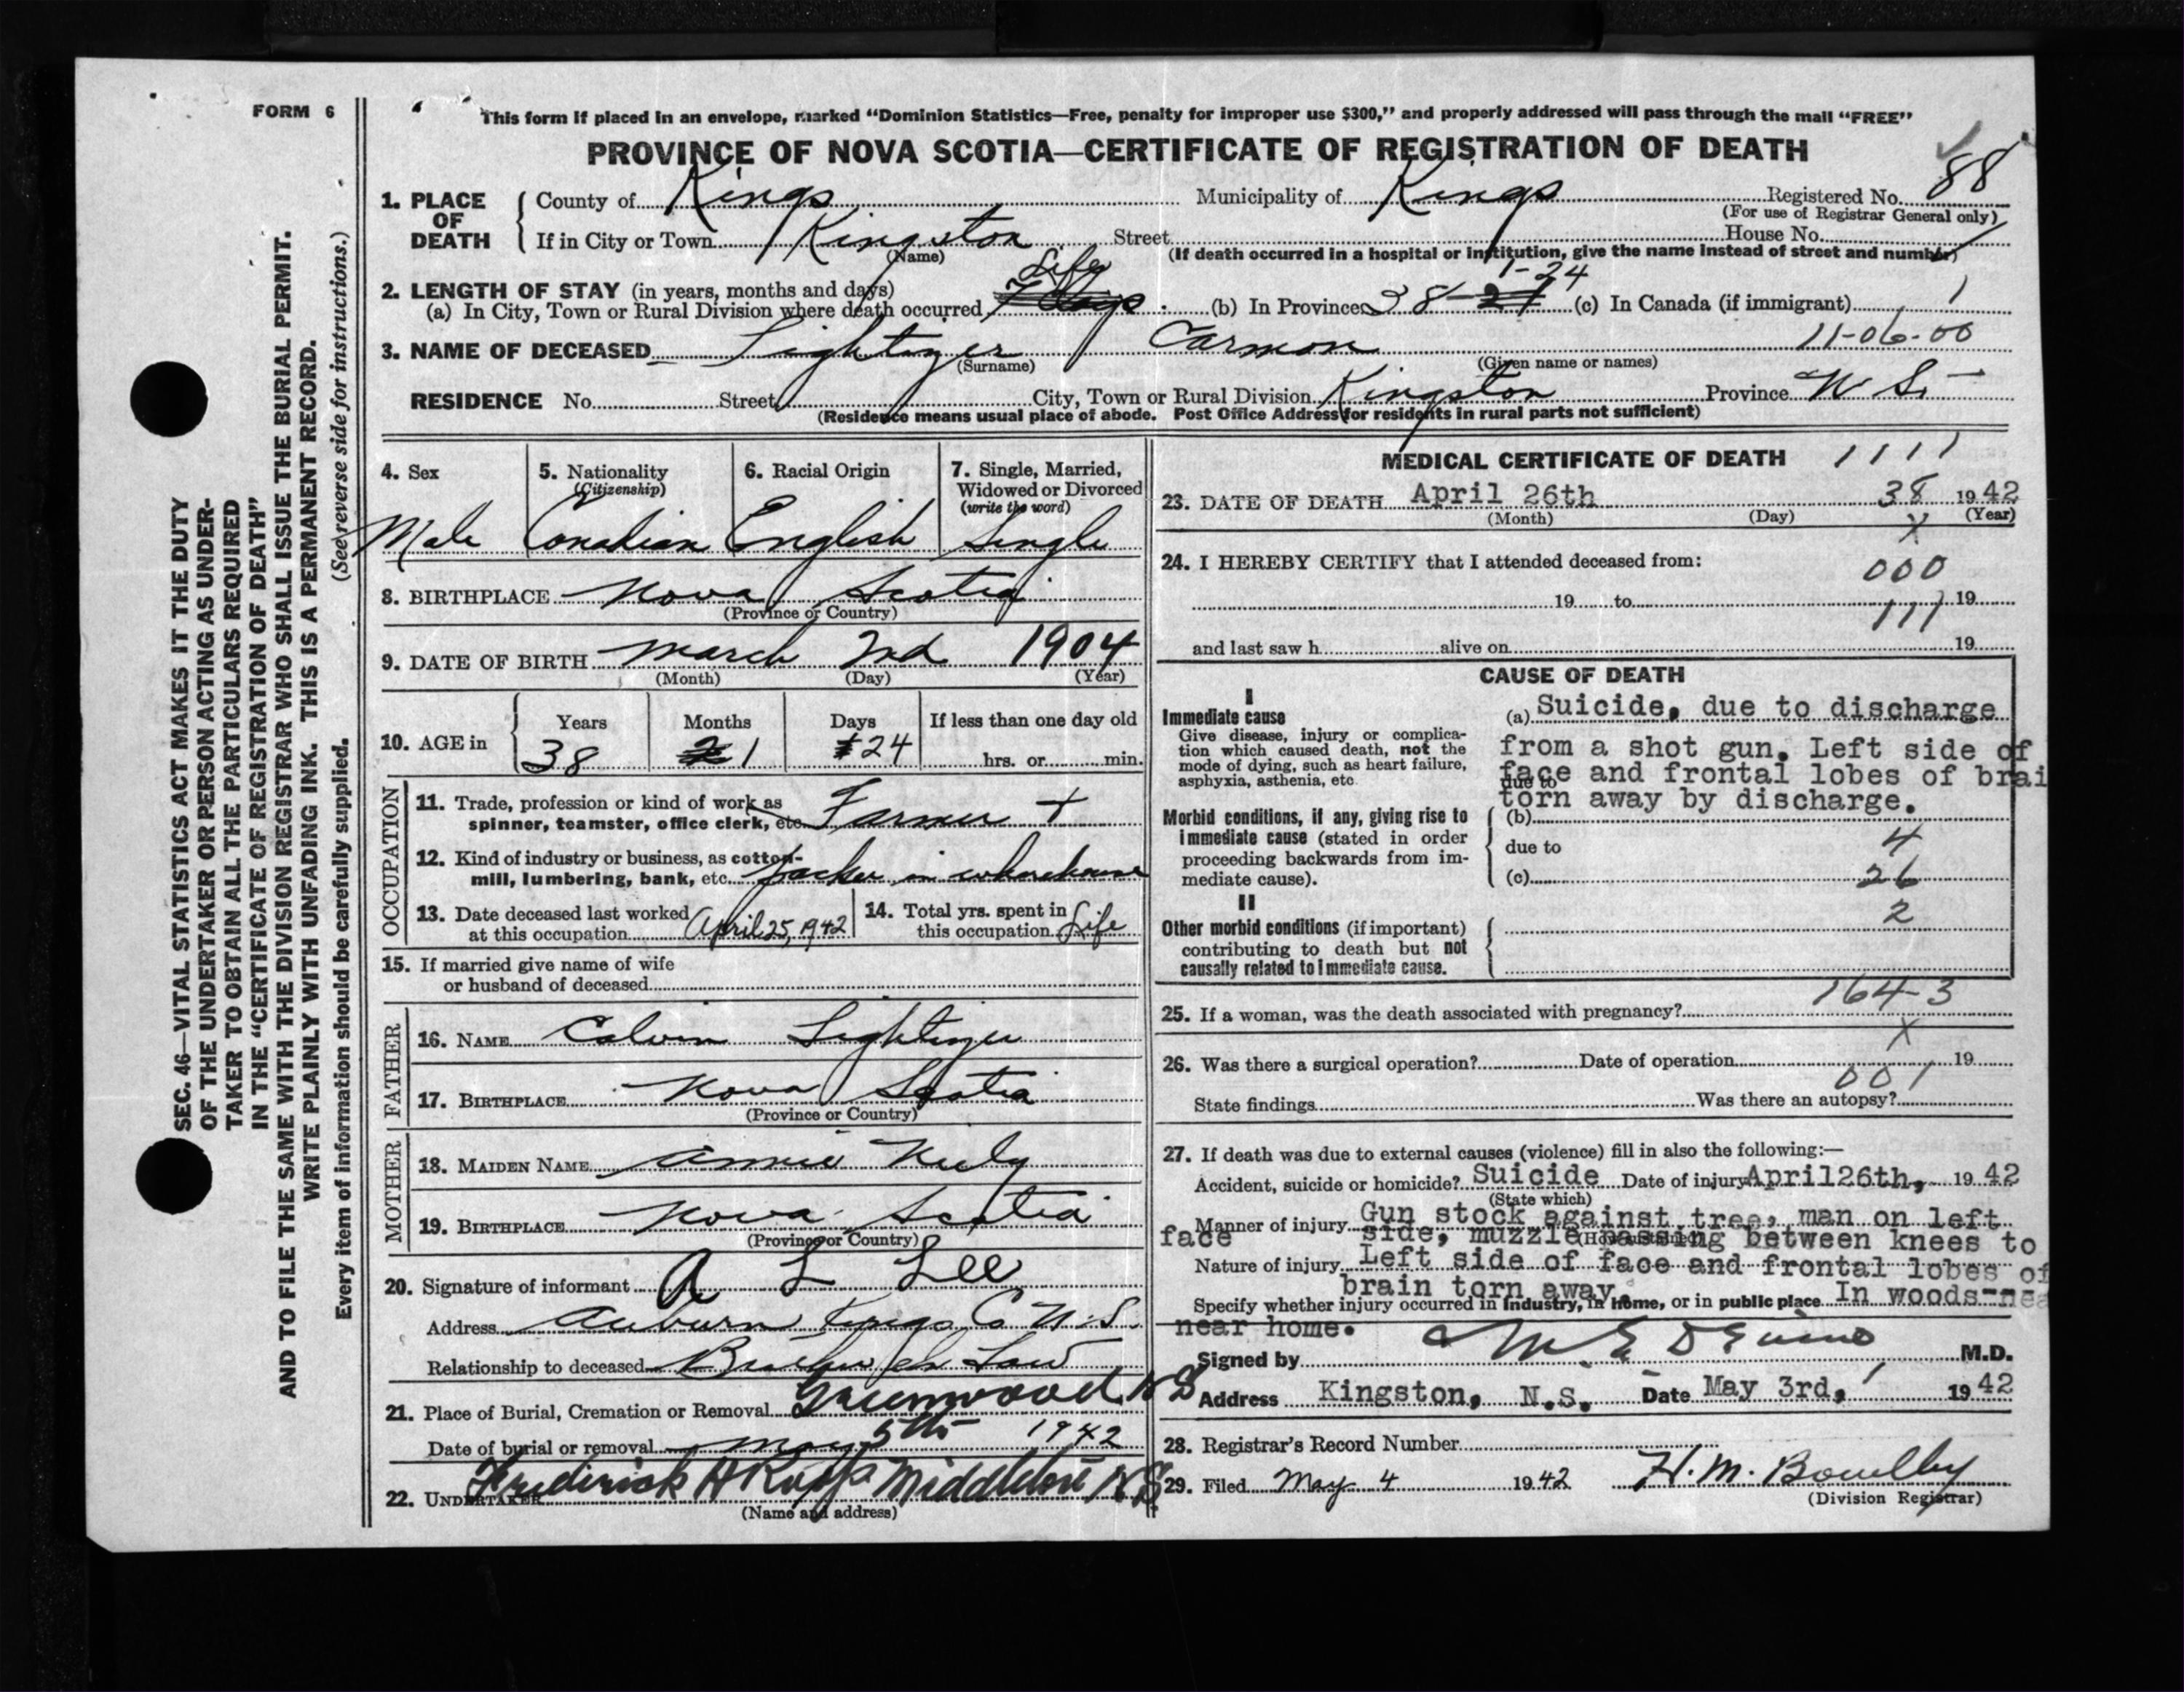 FORM 6
This form if placed in an envelope, marked "Dominion Statistics—Free, penalty for improper use $300," and properly addressed will pass through the mail "FREE"
PROVINCE OF NOVA SCOTIA—CERTIFICATE OF REGISTRATION OF DEATH
88
1. PLACE OF DEATH
County of Kings Municipality of Kings Registered No.
(For use of Registrar General only)
If in City or Town Kingston Street House No.
(Name) (If death occurred in a hospital or institution, give the name instead of street and number)
Life 1-24
2. LENGTH OF STAY (in years, months and days)
(a) In City, Town or Rural Division where death occurred 7 days (b) In Province 38-21 (c) In Canada (if immigrant) 1
11-06-00
3. NAME OF DECEASED Lightizer Carmon
(Surname) (Given name or names)
RESIDENCE No. Street City, Town or Rural Division Kingston Province N. S.
(Residence means usual place of abode. Post Office Address for residents in rural parts not sufficient)
SEC. 46—VITAL STATISTICS ACT MAKES IT THE DUTY
OF THE UNDERTAKER OR PERSON ACTING AS UNDER-
TAKER TO OBTAIN ALL THE PARTICULARS REQUIRED
IN THE "CERTIFICATE OF REGISTRATION OF DEATH"
AND TO FILE THE SAME WITH THE DIVISION REGISTRAR WHO SHALL ISSUE THE BURIAL PERMIT.
WRITE PLAINLY WITH UNFADING INK. THIS IS A PERMANENT RECORD.
Every item of information should be carefully supplied. (See reverse side for instructions.)
4. Sex
Male
5. Nationality
(Citizenship)
Canadian
6. Racial Origin
English
7. Single, Married,
Widowed or Divorced
(write the word)
Single
8. BIRTHPLACE Nova Scotia
(Province or Country)
9. DATE OF BIRTH March 2nd 1904
(Month) (Day) (Year)
10. AGE in
Years Months Days If less than one day old
38 1 24 hrs. or min.
OCCUPATION
11. Trade, profession or kind of work as
spinner, teamster, office clerk, etc. Farmer +
12. Kind of industry or business, as cotton-
mill, lumbering, bank, etc. packer in wharehouse
13. Date deceased last worked
at this occupation April 25, 1942
14. Total yrs. spent in
this occupation Life
15. If married give name of wife
or husband of deceased
FATHER
16. NAME Calvin Lightizer
17. BIRTHPLACE Nova Scotia
(Province or Country)
MOTHER
18. MAIDEN NAME Annie Neily
19. BIRTHPLACE Nova Scotia
(Province or Country)
20. Signature of informant A L Lee
Address Auburn Kings Co N.S.
Relationship to deceased Brother in Law
21. Place of Burial, Cremation or Removal Greenwood N S
Date of burial or removal May 5th 1942
22. UNDERTAKER Frederick A Middleton N.S
(Name and address)
MEDICAL CERTIFICATE OF DEATH 1111
23. DATE OF DEATH April 26th 38 1942
(Month) (Day) (Year)
X
24. I HEREBY CERTIFY that I attended deceased from:
000
19 to 19
111
and last saw h alive on 19
CAUSE OF DEATH
I
Immediate cause
Give disease, injury or complica-
tion which caused death, not the
mode of dying, such as heart failure,
asphyxia, asthenia, etc.
(a) Suicide, due to discharge
from a shot gun. Left side of
face and frontal lobes of brai
due to
torn away by discharge.
Morbid conditions, if any, giving rise to
immediate cause (stated in order
proceeding backwards from im-
mediate cause).
(b)
due to 4
(c) 26
II
Other morbid conditions (if important)
contributing to death but not
causally related to immediate cause.
2
164-3
25. If a woman, was the death associated with pregnancy?
X
26. Was there a surgical operation? Date of operation 19
001
State findings Was there an autopsy?
27. If death was due to external causes (violence) fill in also the following:—
Accident, suicide or homicide? Suicide Date of injury April26th, 1942
(State which)
Manner of injury Gun stock against tree, man on left
face side, muzzle passing between knees to
Nature of injury Left side of face and frontal lobes of
brain torn away.
Specify whether injury occurred in industry, in home, or in public place In woods-nea
near home.
Signed by M.D.
Address Kingston, N.S. Date May 3rd, 1942
28. Registrar's Record Number
29. Filed May 4 1942 H. M. Bowlby
(Division Registrar)